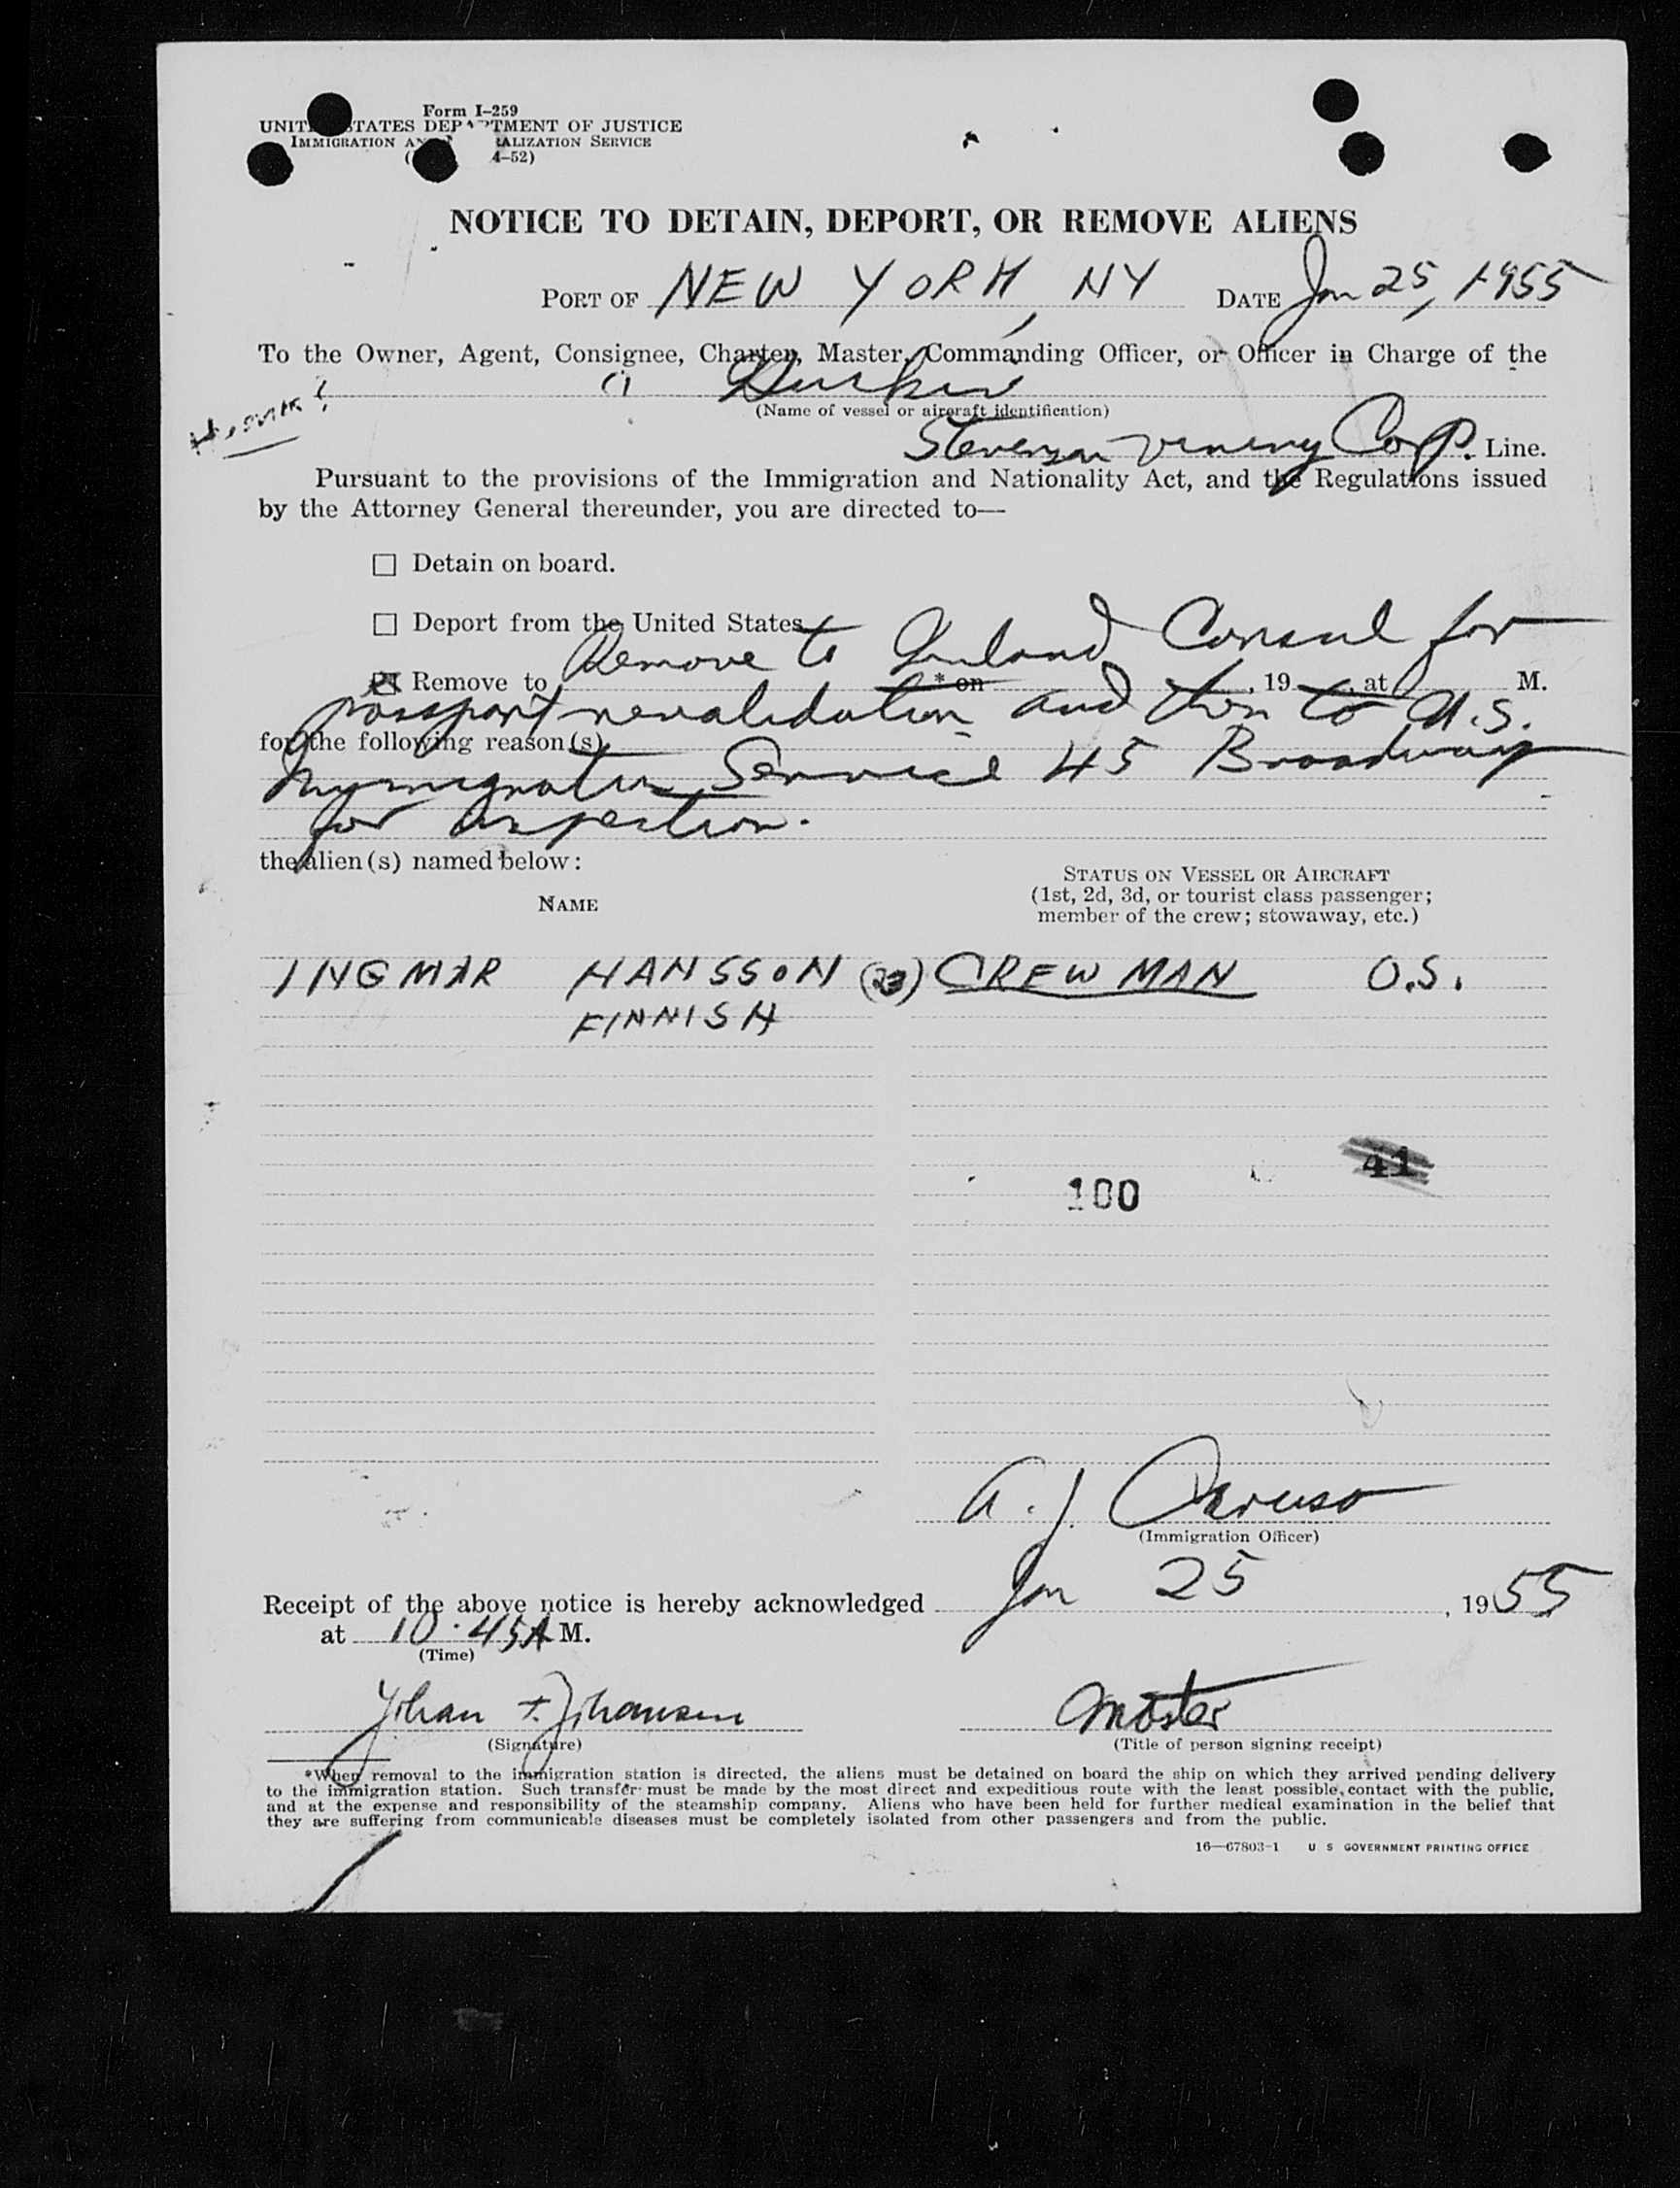 Form I-259
UNITED STATES DEPARTMENT OF JUSTICE
IMMIGRATION AND NATURALIZATION SERVICE
4-52)
NOTICE TO DETAIN, DEPORT, OR REMOVE ALIENS
PORT OF NEW YORK, NY DATE Jan 25, 1955
To the Owner, Agent, Consignee, Charter, Master, Commanding Officer, or Officer in Charge of the
(Name of vessel or aircraft identification)
Corp. Line.
Pursuant to the provisions of the Immigration and Nationality Act, and the Regulations issued
by the Attorney General thereunder, you are directed to—
☐ Detain on board.
☐ Deport from the United States
☒ Remove to Remove to Finland Consul for * on , 19 , at M.
passport revalidation and then to U.S.
for the following reason(s)
Immigration Service 45 Broadway
for inspection.
the alien(s) named below:
NAME
STATUS ON VESSEL OR AIRCRAFT
(1st, 2d, 3d, or tourist class passenger;
member of the crew; stowaway, etc.)
INGMAR HANSSON (23) CREWMAN O.S.
FINNISH
41
100
A. J. Caruso
(Immigration Officer)
Receipt of the above notice is hereby acknowledged Jan 25, 1955
at 10.45 A M.
(Time)
Johan F. Johansen Master
(Signature) (Title of person signing receipt)
*When removal to the immigration station is directed, the aliens must be detained on board the ship on which they arrived pending delivery
to the immigration station. Such transfer must be made by the most direct and expeditious route with the least possible contact with the public,
and at the expense and responsibility of the steamship company. Aliens who have been held for further medical examination in the belief that
they are suffering from communicable diseases must be completely isolated from other passengers and from the public.
16—67803-1 U S GOVERNMENT PRINTING OFFICE